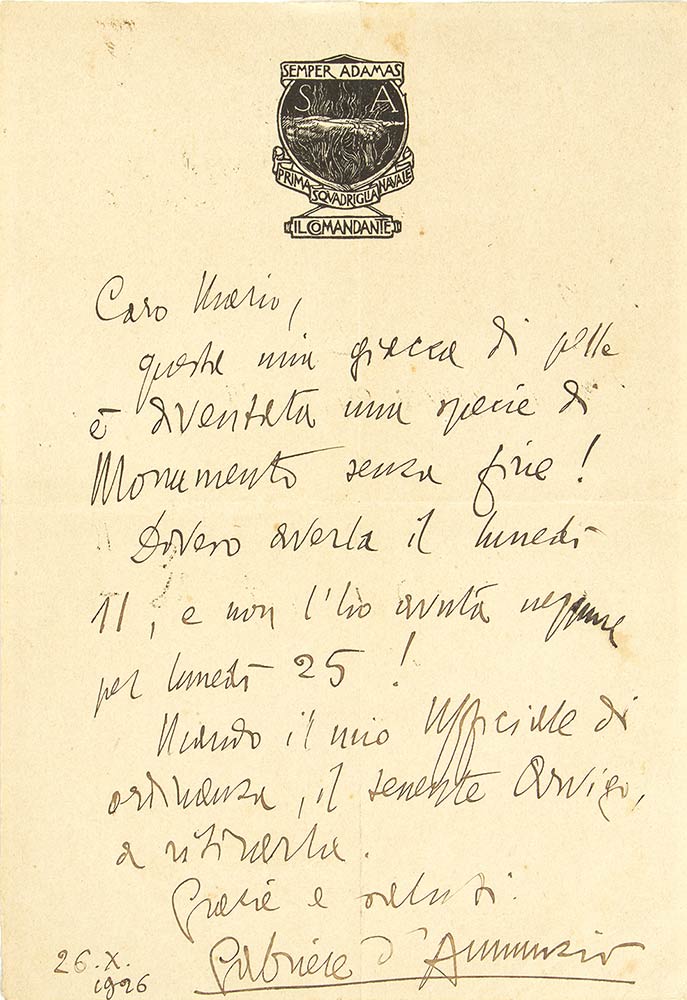 SEMPER ADAMAS
S A
PRIMA SQVADRIGLIA NAVALE
IL COMANDANTE
Caro Mario,
questa mia giacca di pelle
è diventata una specie di
Monumento senza fine!
Dovevo averla il lunedì
11, e non l'ho avuta neppure
per lunedì 25!
Mando il mio Ufficiale di
ordinanza, il tenente Arvigo,
a ritirarla.
Grazie e saluti.
Gabriele d'Annunzio
26.X.
1926